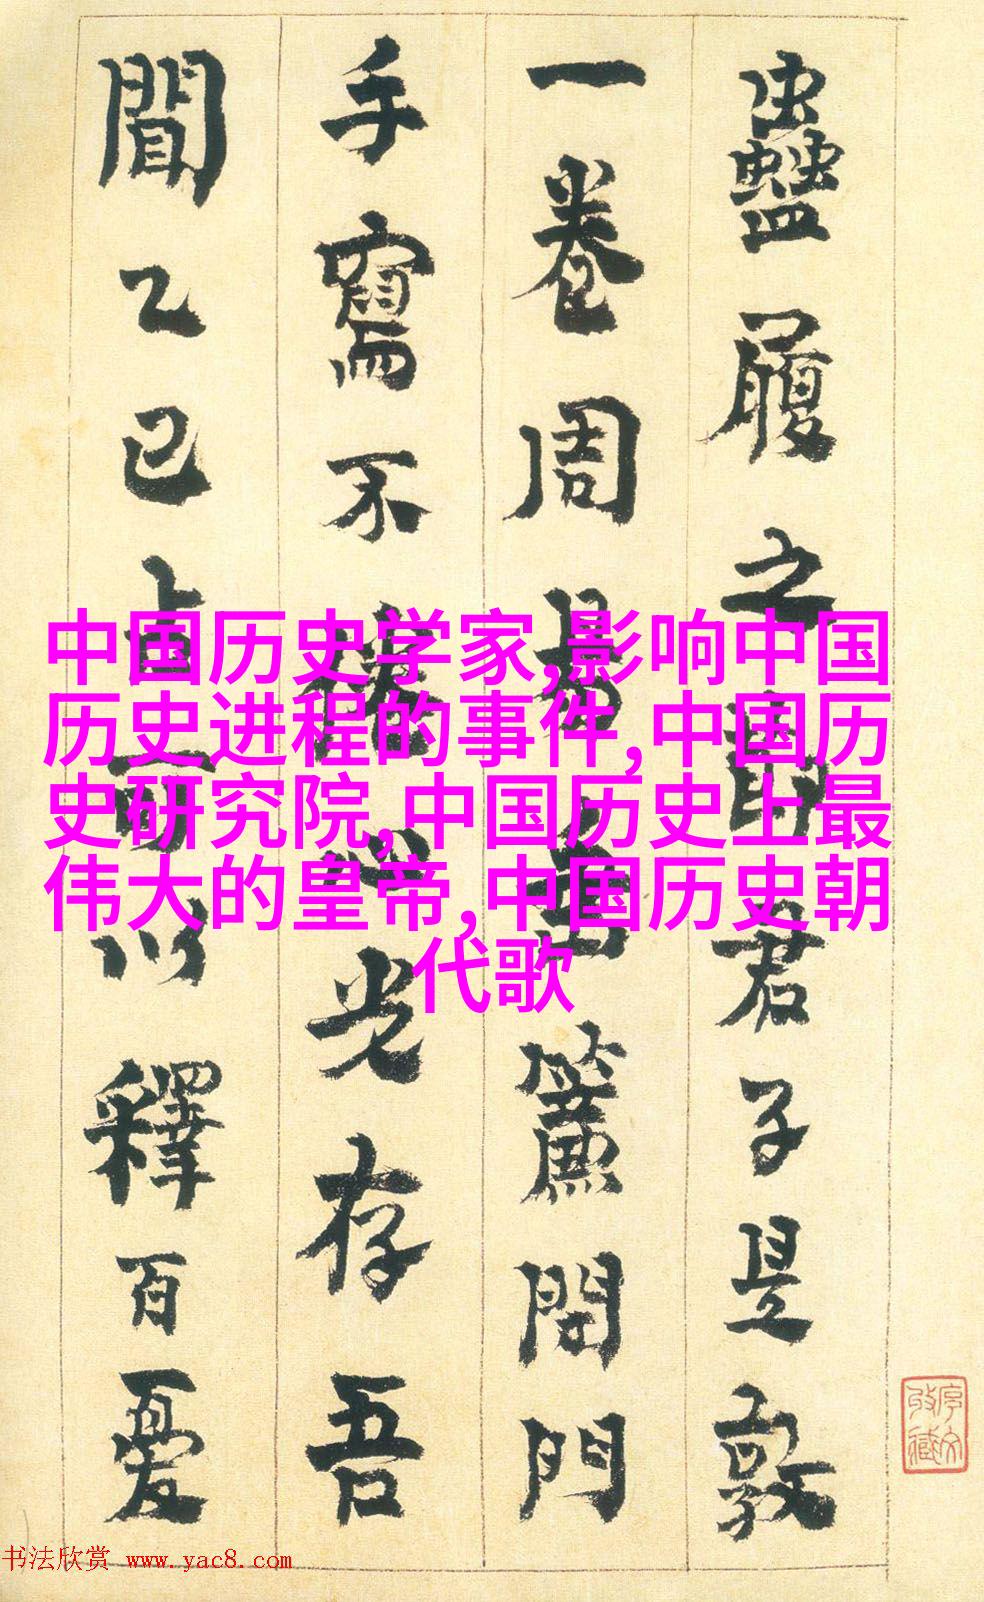 蠱履之君子是敦
一卷周易簾門
手寫不心光存吾
聞乙巳貞可以釋百憂
中国历史学家,影响中国
历史进程的事件,中国历
史研究院,中国历史上最
伟大的皇帝,中国历史朝
代歌
书法欣赏 www.yac8.com